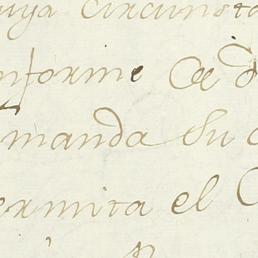 uya circunsta
informe
manda su
ermita el